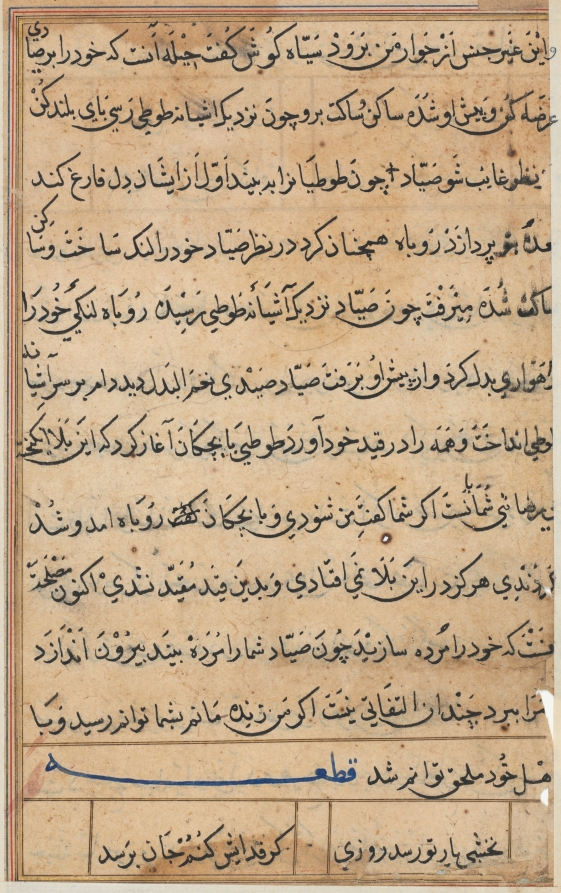 واین غیر جنس از جوار من برود سیاه کوش کفت حیله آنست که خود را بر صیادی
عرضه کن و پیش او شده ساکن ساکت برو چون نزدیک اشیانه طوطی رسی پای بلند کن
نظر غایب شو صیاد چون طوطیانرا به بیند اول از ایشان دل فارغ کند
بعده بتو پردازد روباه همچنان کرد در نظر صیاد خود را لنک ساخت و ساکن
ساکت شده میرفت چون صیاد نزدیک آشیانه طوطی رسیده روباه لنکی خود را
راهواری بدل کرد و از پیش او برفت صیاد صیدی نعم البدل دید دام بر سر آشیانه
طوطی انداخت و همه را در قید خود آورد طوطی با بچکان آغاز کرد که این بلا انکیخته
شما اکر شما کفت من شنودی و با بچکان روباه امد و شد
نکردندی هرکز در این بلا نمی افتادی و بدین قید مقید نشدی اکنون مصلحت
آنست که خود را مرده سازید چون صیاد شما را مرده بیند بیرون اندازد
مرا ببرد چندان التفاتی نیست اکر من زنده مانم بشما توانم رسید و با
اهل خود ملحق توانم شد قطعه
نخشبی یار تو رسد روزی
کر فدایش کنم جان برسد